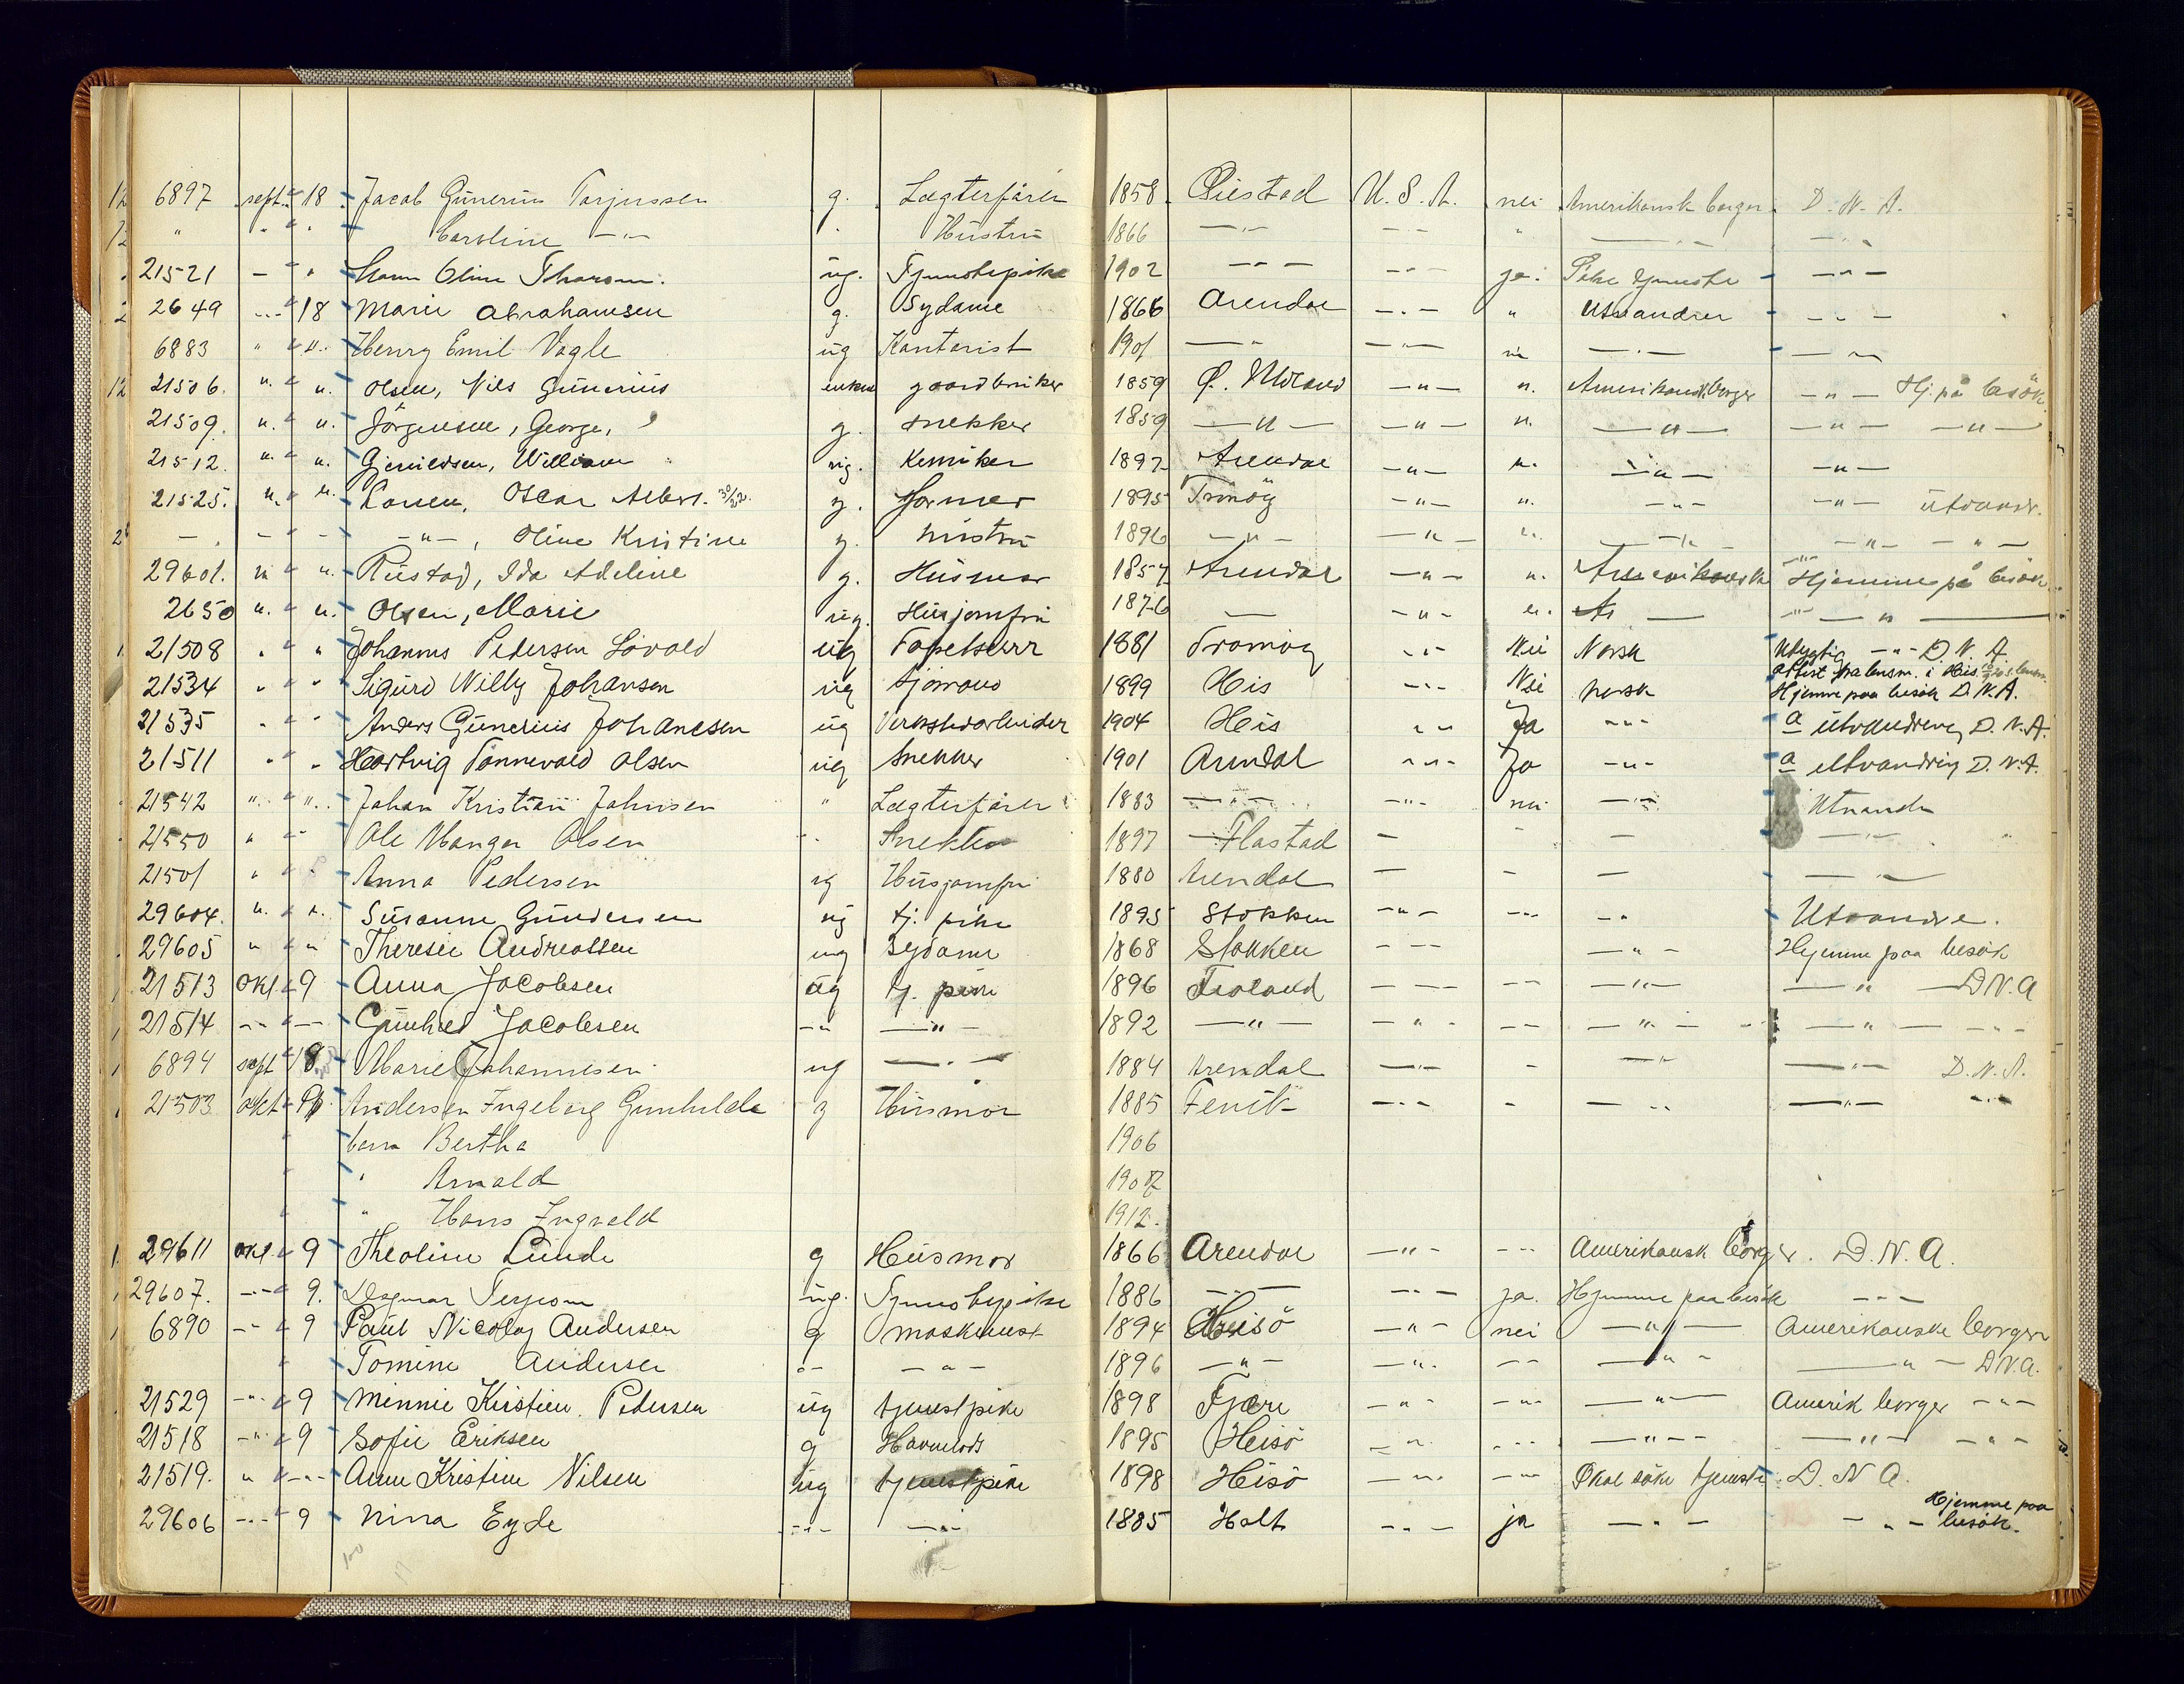 12 6897 sept. " 18 Jacob Gunerius Tarjussen g. Lægterfører 1858 Øiestad U.S.A. nei Amerikansk borger D.N.A.
12 " " " " Caroline -"- " Hustru 1866 -"- -"- " -"- -"-
21521 - " " Oline ug. Tjenestepike 1902 -"- -"- ja. D -"-
2649 -"- " 18 Marie Abrahamsen g. Sydame 1866 Arendal -"- " Utvandrer -"-
6883 " " " Henry Emil Vagle ug Kontorist 1901 -"- -"- -"- -"-
12 21506. " " " Olsen, Nils Gunerius enkem gaardbruker 1859 Ø. Moland -"- " Amerikansk borger -"- Hj. på besök.
21509. " " " Jörgensen, George, g. snekker 1859 -"- -"- " -"- -"- -"-
21512. " " " William ug. Kemiker 1897 Arendal -"- " -"- -"-
21525. " " " Larsen, Oscar Albert. 30/22. g. former 1895 Tromöy -"- " -"- -"- utvandr.
- - - - -"-, Oline Kristine g. hustru 1896 -"- -"- " -"- -"- -"-
29601. " " " Rustad, Ida Adeline g. Husmor 1857 Arendal -"- " Amerikansk Hjemme på besök
2650 " " " Olsen, Marie ug. Husjomfru 1876 - -"- " -"-
21508 " " " Johannes Pedersen Lövold ug Tapetserer 1881 Tromöy -"- Nei Norsk Utygtig -"- D.N.A.
attest fra lensm. i His
21534 " " " Sigurd Willy Johansen ug sjömand 1899 His -"- Nei norsk Hjemme paa besök D.N.A.
21535 " " " Anders Gunerius Johanesen ug Verkstedarbeider 1904 His -"- Ja -"- a utvandring D.N.A.
21511 " " " Hartvig Tönnevold Olsen ug snekker 1901 Arendal -"- Ja -"- a utvandring D.N.A.
21542 " " Johan Kristian Johnsen " Lægterfører 1883 -"- -"- nei -"- Utvandr
21550 " " Ole Manger Olsen " Snekker 1897 Flostad - - - -"-
21501 " " Anna Pedersen ug Husjomfru 1880 Arendal - - - -"-
29604. " " " Susanne Gundersen ug tj. pike 1895 Stokken -"- -"- -"- Utvandre.
29605 " " " Therese Andreassen ug Sydame 1868 Stokken -"- -"- Hjemme paa besök
21513 Okt. " 9 Anna Jacobsen ug tj. pike 1896 Froland -"- -"- -"- -"- D.N.A
21514 -"- " -"- Gunhild Jacobsen -"- -"- 1892 -"- -"- -"- -"- -"- -"-
6894 sept " 18 Marie Johannesen ug -"- 1884 Arendal -"- - -"- -"- D.N.A.
21503 okt " 9 Andersen Ingeborg Gunhilde g Husmor 1885 Fevik -"- - -"- -"- -"-
" barn Bertha 1906
" " Arnold 1907
" " Hans Ingvald 1912.
29611 okt. " 9 Theoline Lunde g Husmor 1866 Arendal -"- -"- Amerikansk borger. D.N.A.
29607. -"- 9. Dagmar ug. Tjenestepike 1886 -"- -"- ja. Hjemme paa besök -"-
6890 -"- " 9 Paul Nicolay Andersen g maskinist 1894 Heisö -"- nei -"- Amerikanske borger
" Tomine Andersen -"- -"- 1896 -"- -"- -"- -"- -"- D.N.A.
21529 -"- " 9 Minnie Kirstine Pedersen ug tjenestpike 1898 Fjære -"- -"- -"- Amerik borger -"-
21518 -"- " 9 Sofie Eriksen g Havnelods 1895 Heisö -"- -"- -"- -"- -"-
21519. " " -"- Anne Kristine Nilsen ug tjenestpike 1898 Hisö -"- -"- Skal söke tjeneste D.N.A.
29606 -"- 9 Nina Eyde -"- -"- 1885 Holt -"- ja -"- -"- Hjemme paa besök.
100